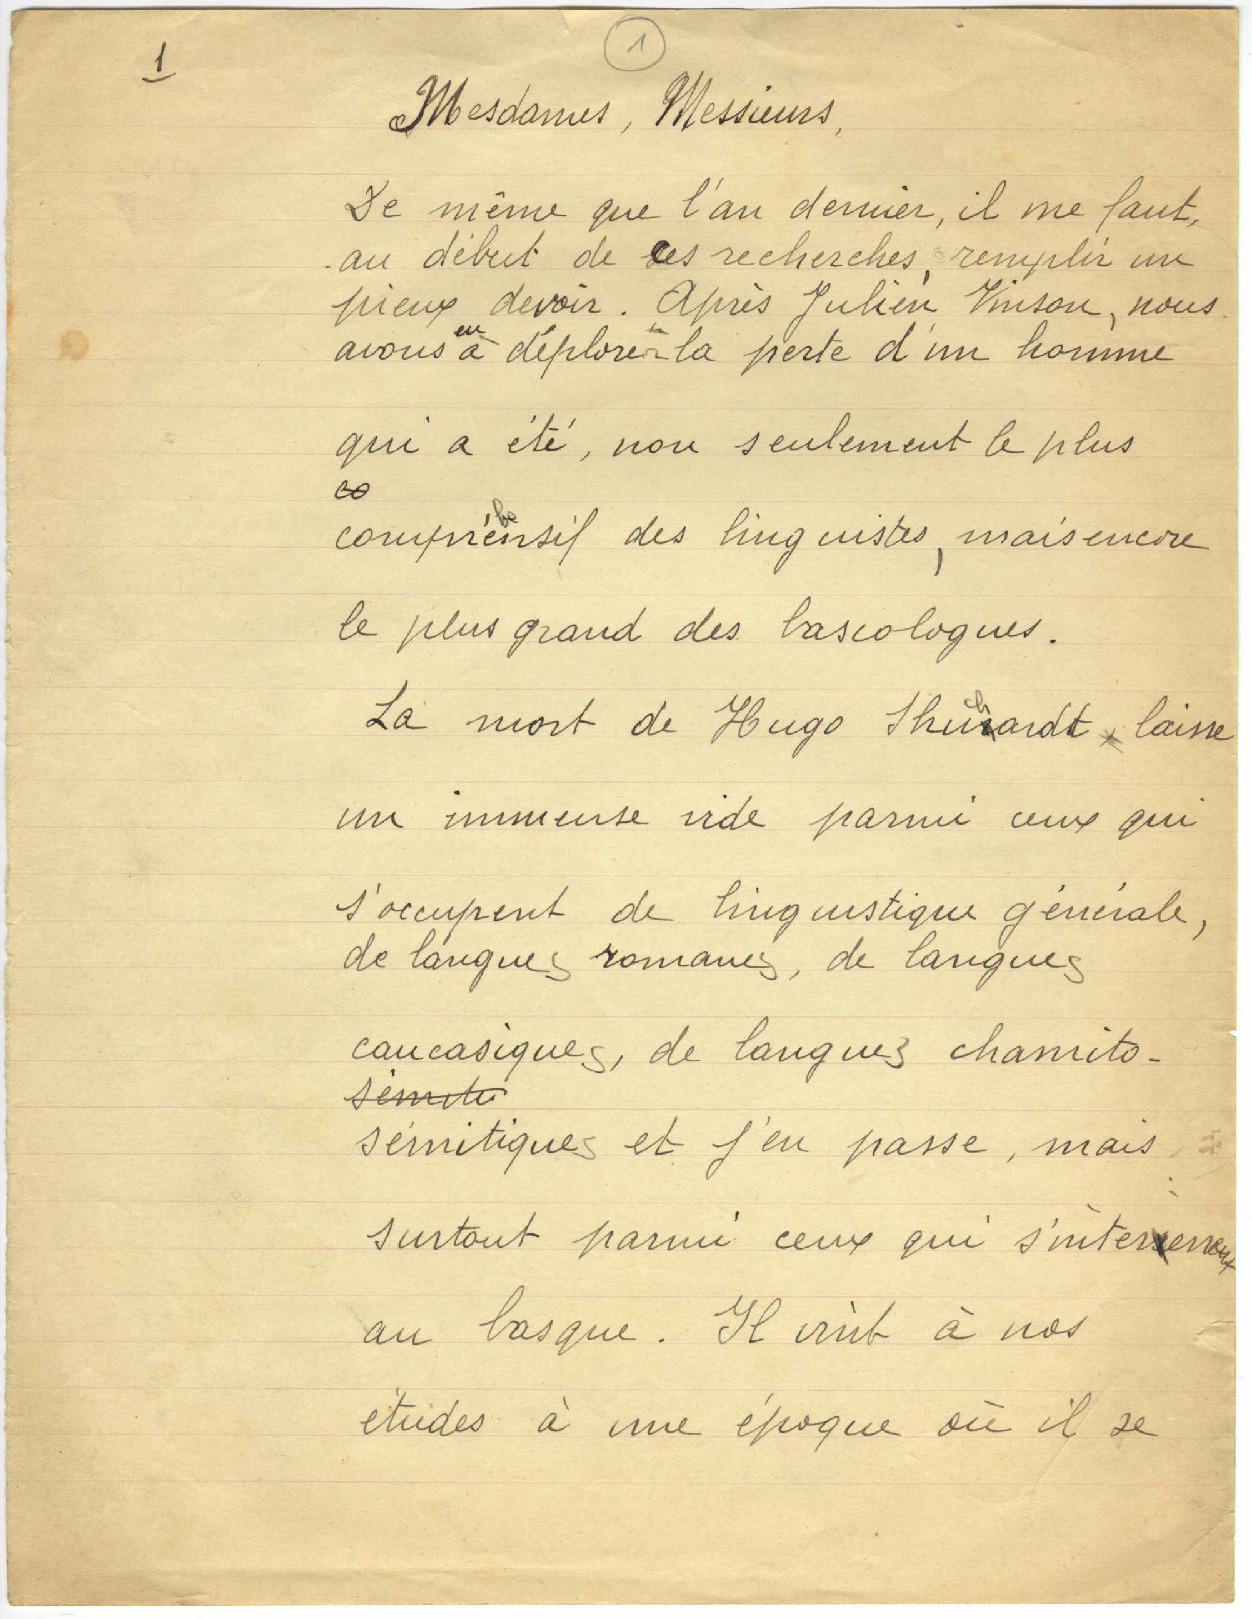 1
1
Mesdames, Messieurs,
De même que l'an dernier, il me faut,
au début de ces recherches, remplir un
pieux devoir. Après Julien Vinson, nous
avons eu à déplorer la perte d'un homme
qui a été, non seulement le plus
co
compréhensif des linguistes, mais encore
le plus grand des bascologues.
La mort de Hugo Shuchardt laisse
un immense vide parmi ceux qui
s'occupent de linguistique générale,
de langues romanes, de langues
caucasiques, de langues chamito-
sémiti
sémitiques et j'en passe, mais
surtout parmi ceux qui s'intéressent
au basque. Il vint à nos
études à une époque où il se